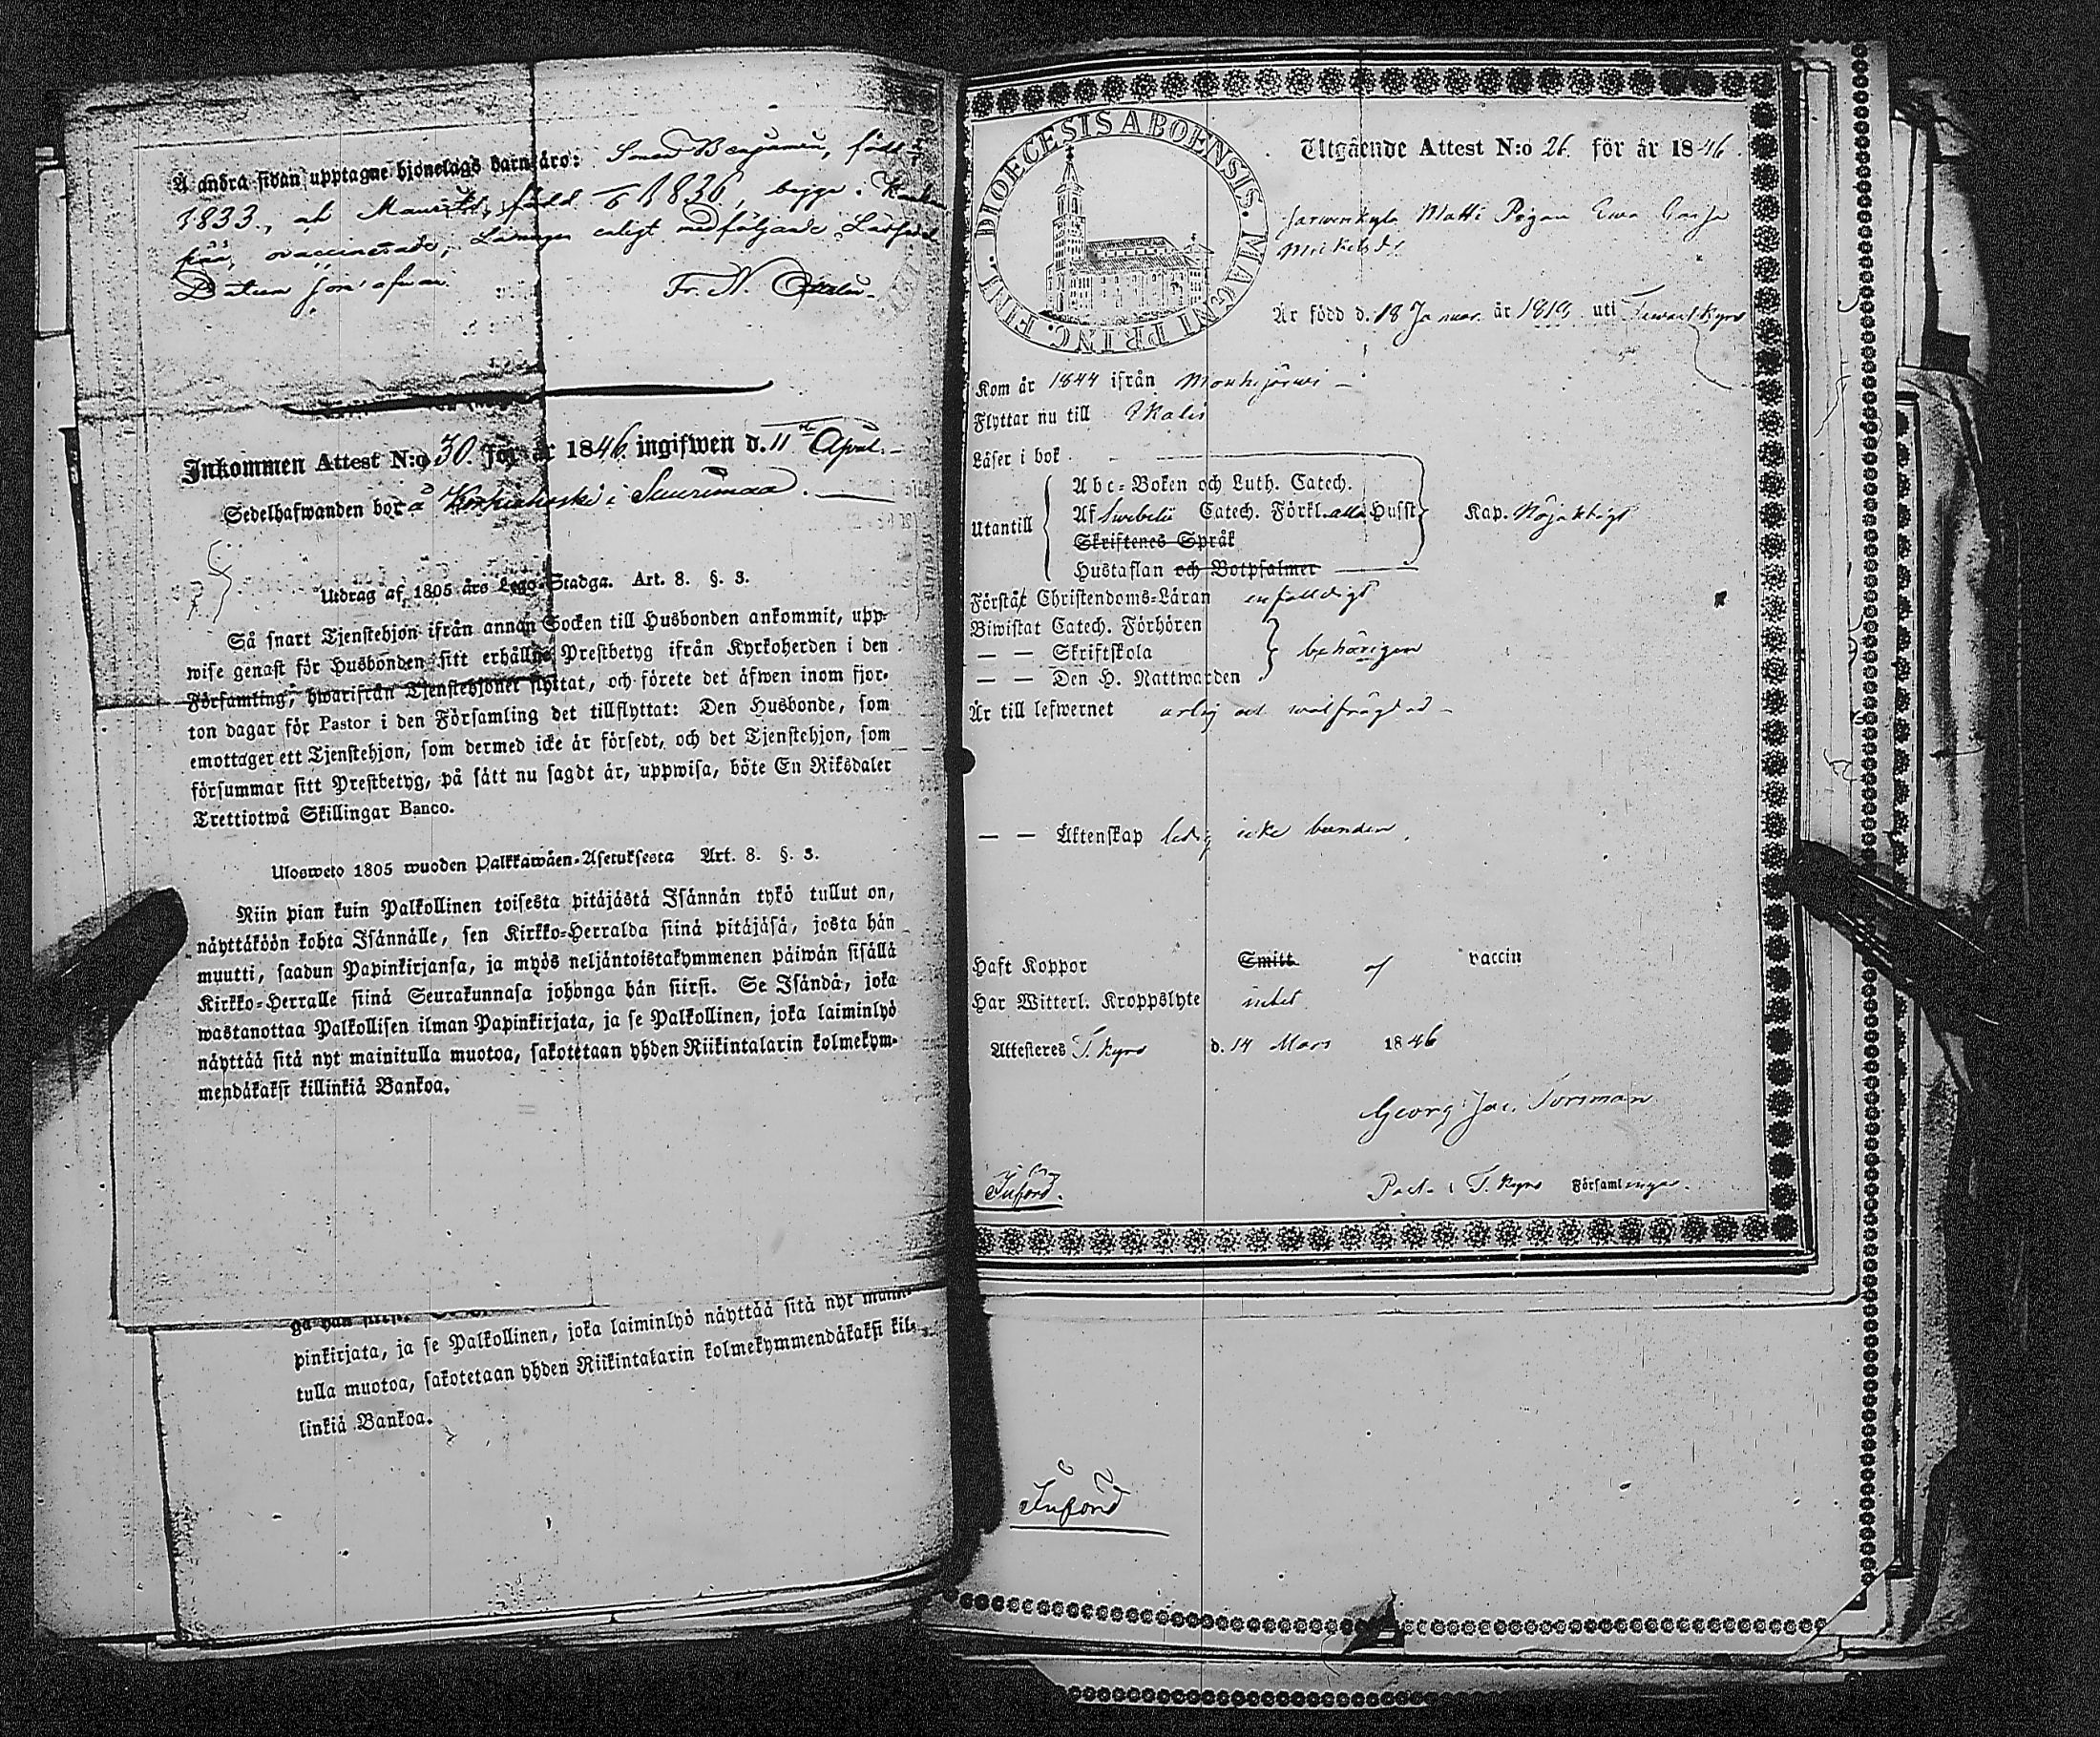 Å andra sidan upptagne hjonelags barn äro: Sonen Benjamin, född
1833, och Mauritz, född 1836, begge
vaccinerade, enligt medföljande
Datum som ofvan. Fr. N.
Inkommen Attest N:o 30. för år 1846 ingifwen d. 11 April.
Sedelhafwanden bor å i Suurimaa.
Utdrag af 1805 års Lego-Stadga. Art. 8. §. 3.
Så snart Tjenstehjon ifrån annan Socken till Husbonden ankommit, upp-
wise genast för Husbonden sitt erhållne Prestbetyg ifrån Kyrkoherden i den
Församling, hwarifrån Tjenstehjonet flyttat, och förete det äfwen inom fjor-
ton dagar för Pastor i den Församling det tillflyttat: Den Husbonde, som
emottager ett Tjenstehjon, som dermed icke är försedt, och det Tjenstehjon, som
försummar sitt Prestbetyg, på sätt nu sagdt är, uppwisa, böte En Riksdaler
Trettiotwå Skillingar Banco.
Uloswеto 1805 wuoden Palkkawäen-Asetuksesta Art. 8. §. 3.
Niin pian kuin Palkollinen toisesta pitäjästä Isännän tykö tullut on,
näyttäköön kohta Isännälle, sen Kirkko-Herralda siinä pitäjäsä, josta hän
muutti, saadun Papinkirjansa, ja myös neljäntoistakymmenen päiwän sisällä
Kirkko-Herralle siinä Seurakunnasa johonga hän siirsi. Se Isändä, joka
wastanottaa Palkollisen ilman Papinkirjata, ja se Palkollinen, joka laiminlyö
näyttää sitä nyt mainitulla muotoa, sakotetaan yhden Riikintalarin kolmekym-
mendäkaksi killinkiä Bankoa.
pinkirjata, ja se Palkollinen, joka laiminlyö näyttää sitä nyt main-
tulla muotoa, sakotetaan yhden Riikintalarin kolmekymmendäkaksi kil-
linkiä Bankoa.
DIOECESIS ABOENSIS. MAGNI PRINC. FINL.
Utgående Attest N:o 26. för år 1846.
Jarwenkylä Matti Pigan Ewa Caisa
Mickelsdr
Är född d. 18 Januar. år 1819 uti Tawastkyrö
Kom år 1844 ifrån Mouhijärwi
Flyttar nu till Ikalis
Läser i bok
Utantill
Abc-Boken och Luth. Catech.
Af Swebelii Catech. Förkl. alla Husst Kap. Nöjaktigt
Skriftenes Språk
Hustaflan och Botpsalmer
Förstår Christendoms-Läran enfaldigt
Biwistat Catech. Förhören
— — Skriftskola behörigen
— — Den H. Nattwarden
Är till lefwernet ärlig och wälfrägdad
— — Äktenskap ledig icke bunden.
Haft Koppor Smitt. af vaccin
Har Witterl. Kroppslyte intet
Attesteres T. kyrö d. 14 Mars 1846
Georg Jac. Forsman
Past. i T. kyrö Församlingar.
Införd.
Införd